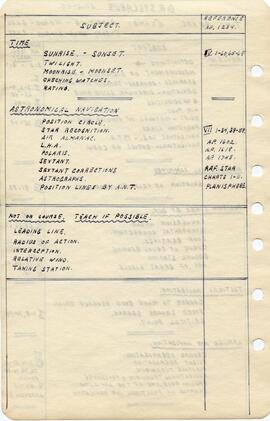 SUBJECT.
REFERENCE
A.P. 1234.
TIME
SUNRISE. - SUNSET.
TWILIGHT.
MOONRISE - MOONSET.
CHECKING WATCHES.
RATING.
ASTRONOMICAL NAVIGATION
POSITION CIRCLE.
STAR RECOGNITION.
AIR ALMANAC.
A.P. 1602.
L.H.A.
A.P. 1618.
POLARIS.
SEXTANT.
SEXTANT CORRECTIONS
R.A.F. STAR
ASTROGRAPHS.
CHARTS
POSITION LINES BY A.N.T.
PLANISPHERE.
NOT ON COURSE. TEACH IF POSSIBLE.
LEADING LINE.
RADIUS OF ACTION.
INTERCEPTION.
RELATIVE WIND.
TAKING STATION.